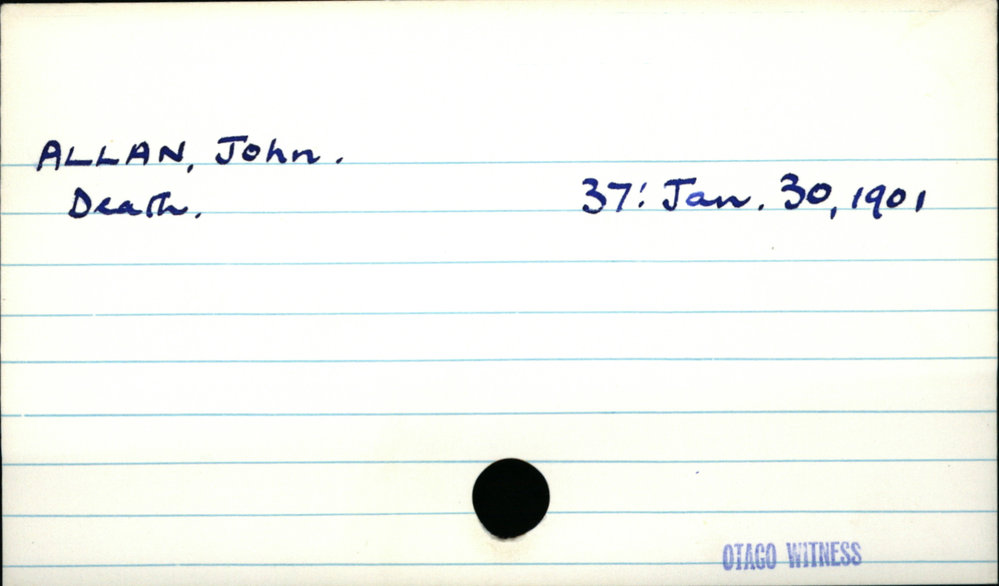 ALLAN, John.
Death. 37: Jan. 30, 1901
OTAGO WITNESS